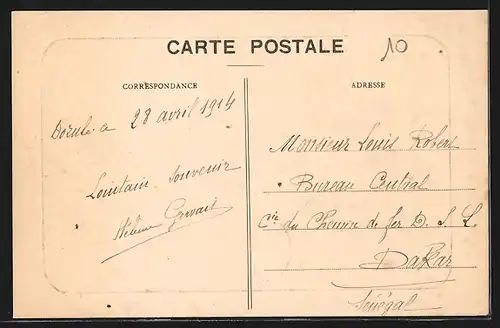 CARTE POSTALE
10
CORRESPONDANCE
ADRESSE
28 avril 1914
Lointain souvenir
Hélène Gervais
Monsieur Louis Robert
Bureau Central
Cie du Chemin de fer D. S. L.
Dakar
Sénégal